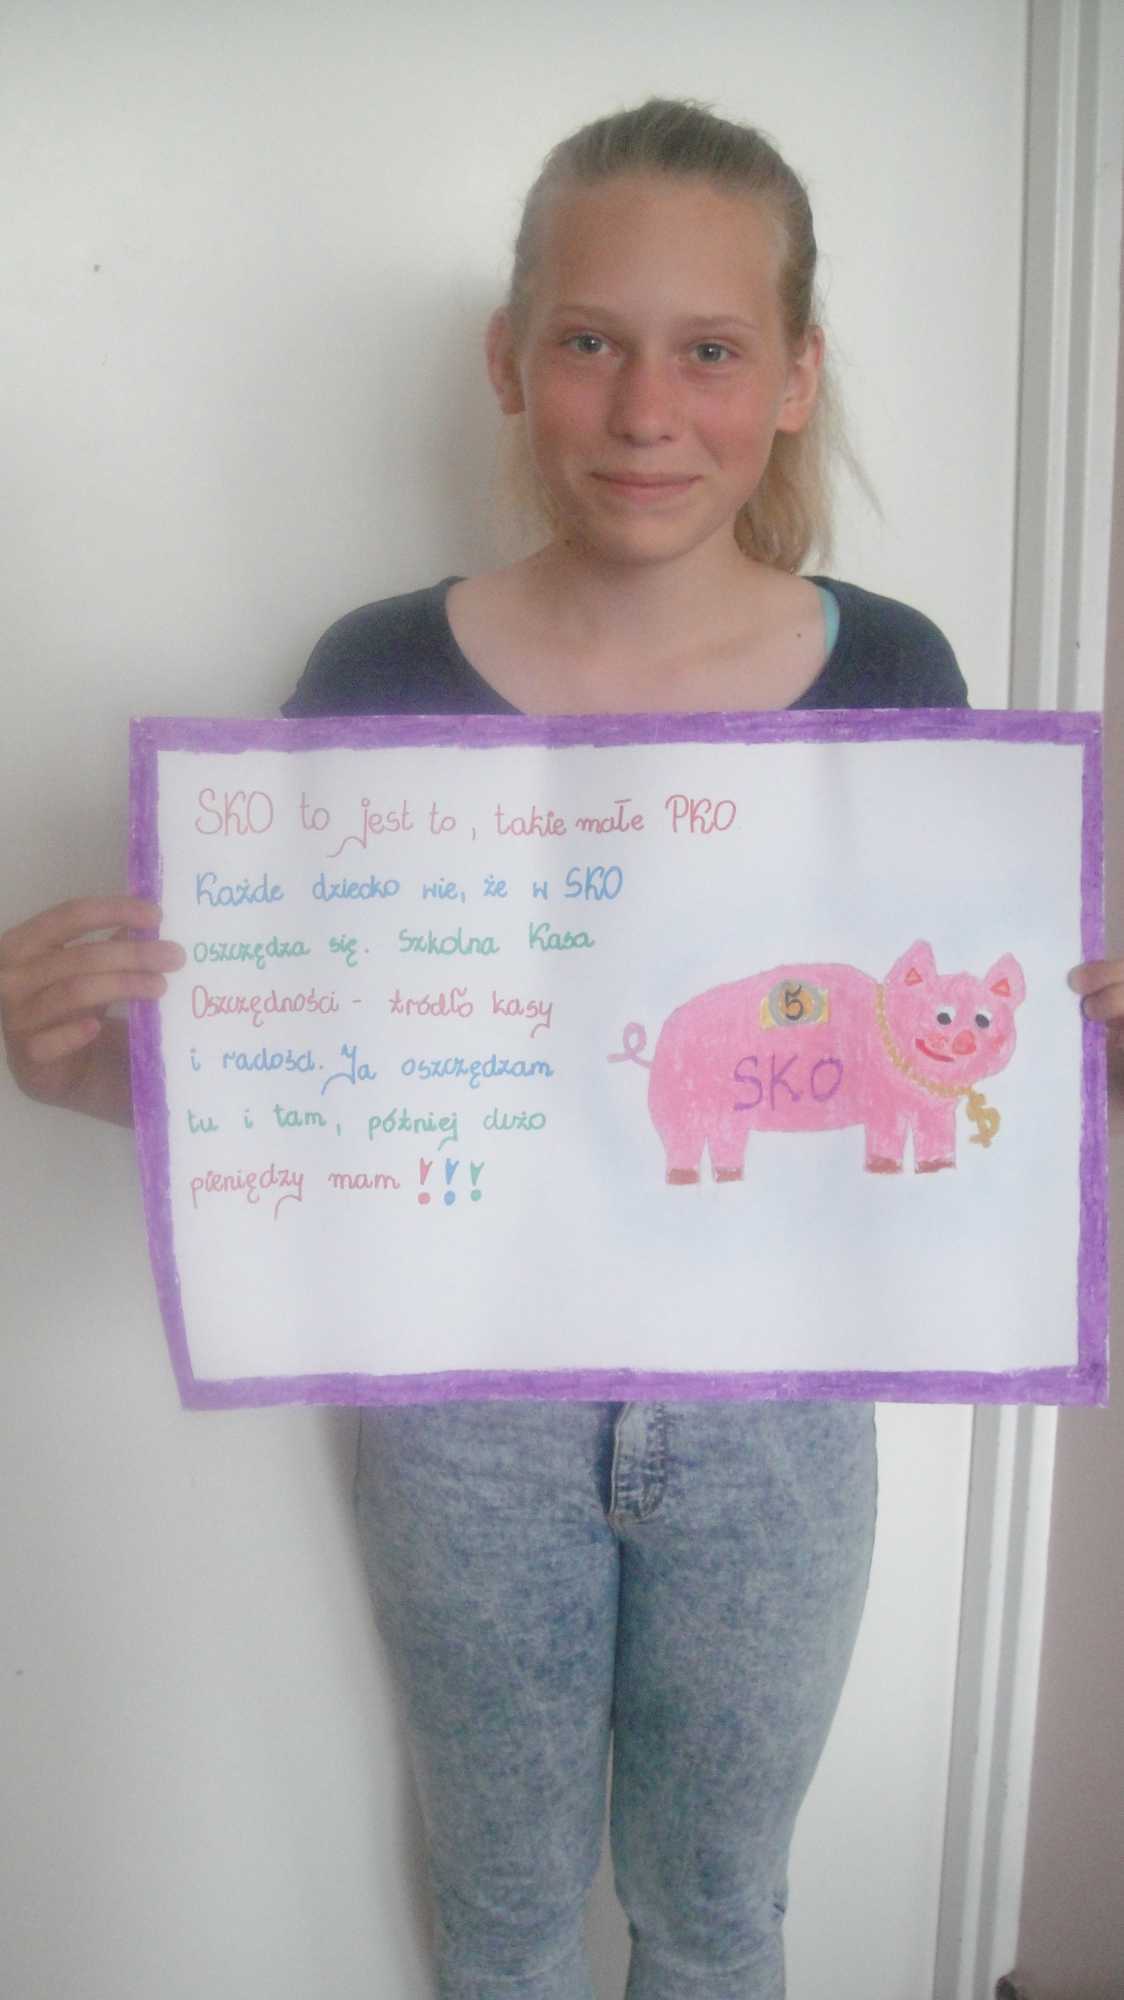 SKO to jest to, takie małe PKO
Każde dziecko wie, że w SKO
oszczędza się. Szkolna Kasa
Oszczędności - źródło kasy
i radości. Ja oszczędzam
tu i tam, później dużo
pieniędzy mam !!!
5
SKO